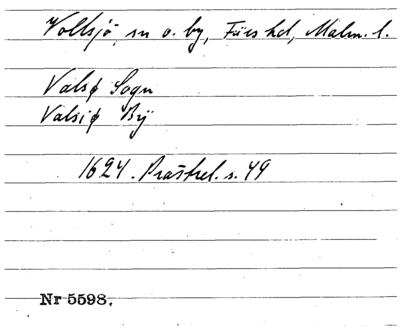 Vollsjö, sn o. by, Färs hd, Malm. l.
Valsø Sogn
Valsiø Bÿ
1624. Prästrel. s. 49
Nr 5598.